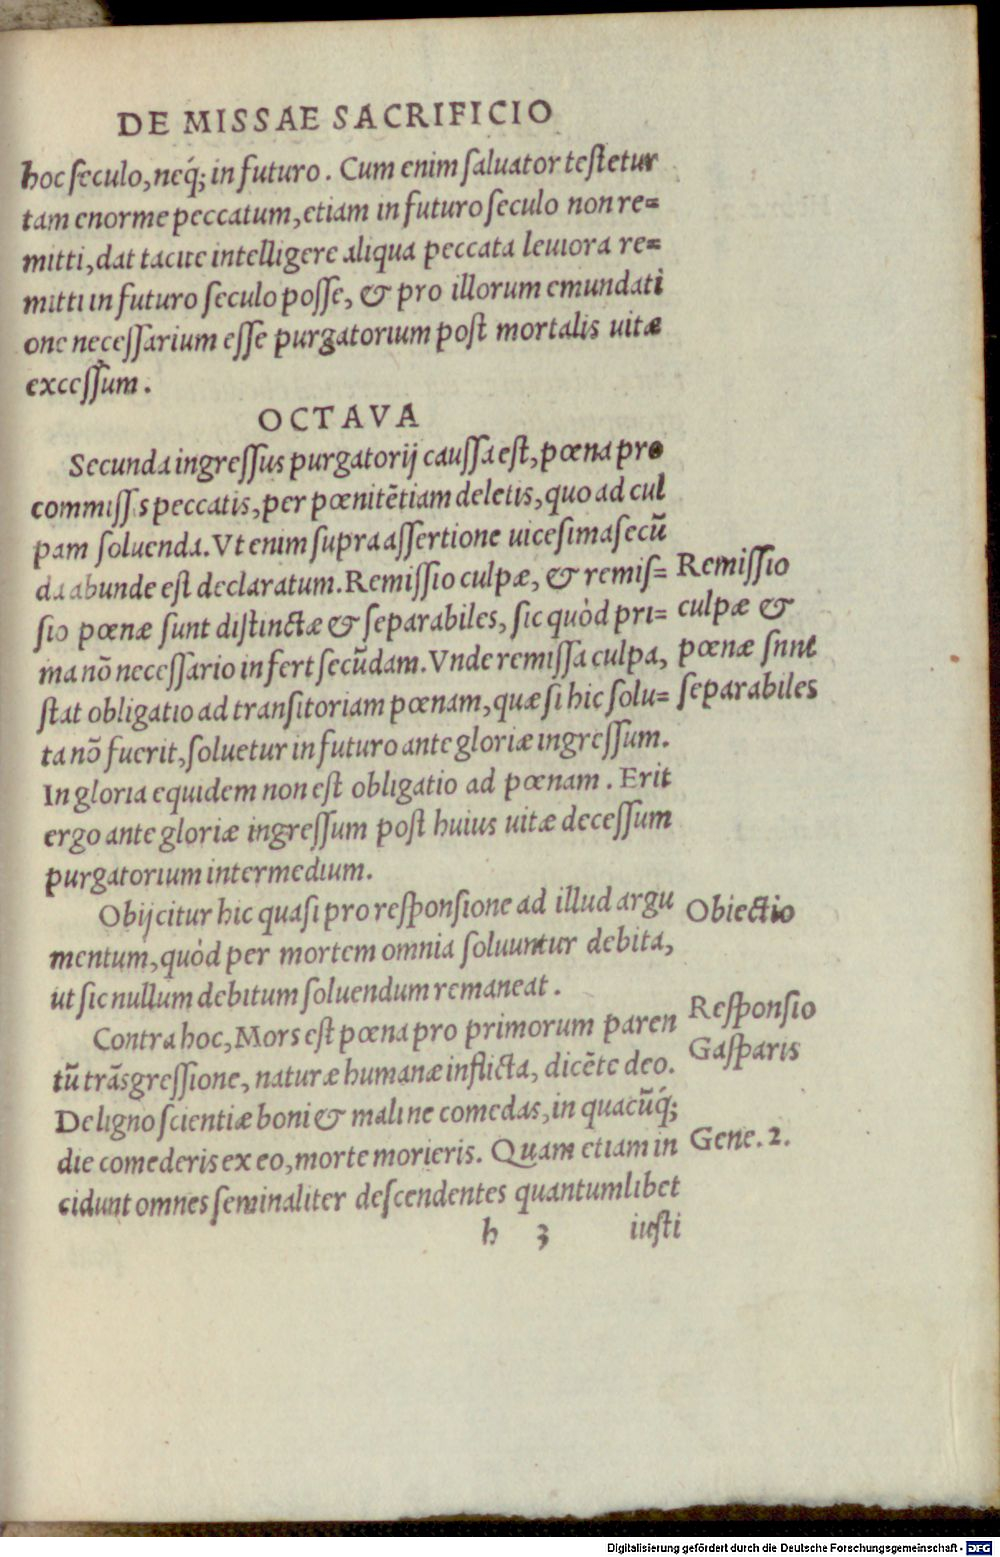 DE MISSAE SACRIFICIO
hoc seculo, neq́; in futuro. Cum enim saluator testetur
tam enorme peccatum, etiam in futuro seculo non re=
mitti, dat tacite intelligere aliqua peccata leuiora re=
mitti in futuro seculo posse, & pro illorum emundati
one necessarium esse purgatorium post mortalis uitæ
excessum.
OCTAVA
Secunda ingressus purgatorij caussa est, pœna pro
commissis peccatis, per pœnitẽtiam deletis, quo ad cul
pam soluenda. Vt enim supra assertione uicesimasecũ
da abunde est declaratum. Remissio culpæ, & remis=
sio pœnæ sunt distinctæ & separabiles, sic quòd pri=
ma nõ necessario infert secũdam. Vnde remissa culpa,
stat obligatio ad transitoriam pœnam, quæ si hic solu=
ta nõ fuerit, soluetur in futuro ante gloriæ ingressum.
In gloria equidem non est obligatio ad pœnam. Erit
ergo ante gloriæ ingressum post huius uitæ decessum
purgatorium intermedium.
Remissio
culpæ &
pœnæ snnt
separabiles
Obijcitur hic quasi pro responsione ad illud argu
mentum, quòd per mortem omnia soluuntur debita,
ut sic nullum debitum soluendum remaneat.
Obiectio
Contra hoc, Mors est pœna pro primorum paren
tũ trãsgressione, naturæ humanæ inflicta, dicẽte deo.
De ligno scientiæ boni & mali ne comedas, in quacũq́;
die comederis ex eo, morte morieris. Quam etiam in
cidunt omnes seminaliter descendentes quantumlibet
Responsio
Gasparis
Gene. 2.
h 3 iusti
Digitalisierung gefördert durch die Deutsche Forschungsgemeinschaft - DFG